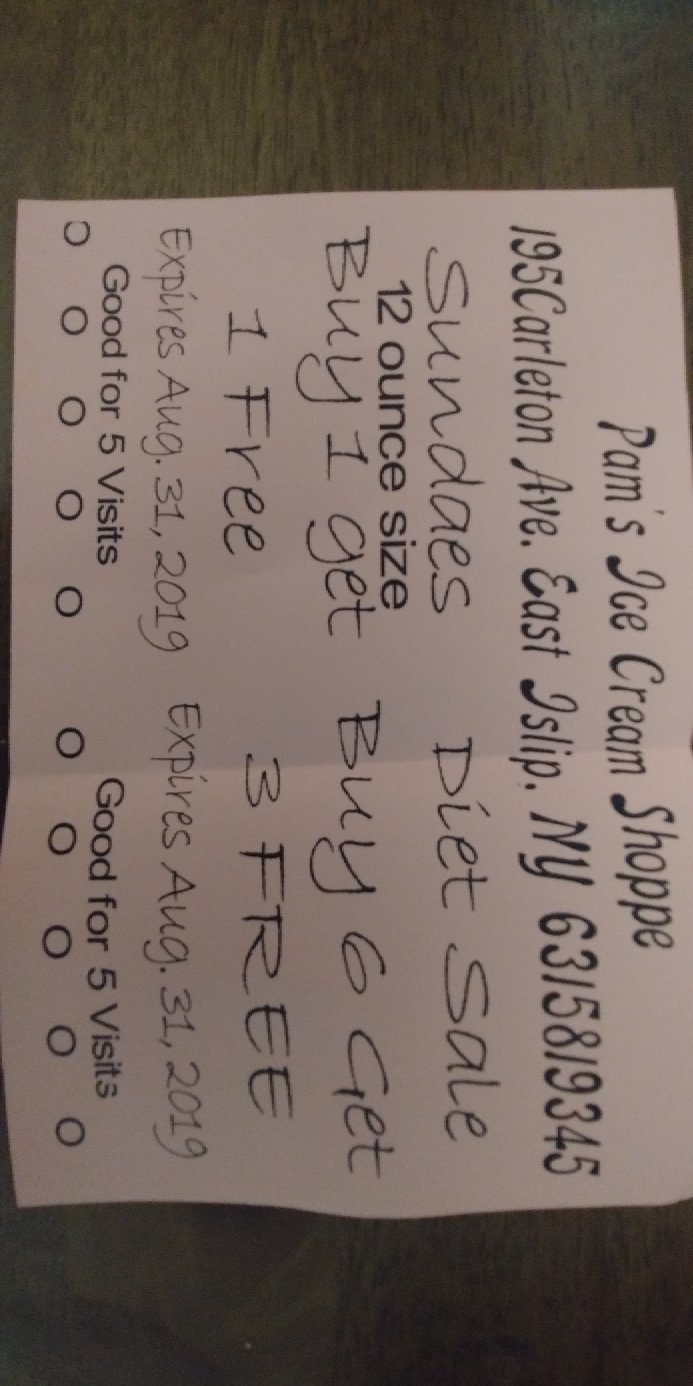 Pam's Ice Cream Shoppe
195Carleton Ave. East Islip. NY 6315819345
Sundaes
12 ounce size
Buy 1 get
1 Free
Expires Aug. 31, 2019
Good for 5 Visits
Diet Sale
Buy 6 Get
3 FREE
Expires Aug. 31, 2019
Good for 5 Visits